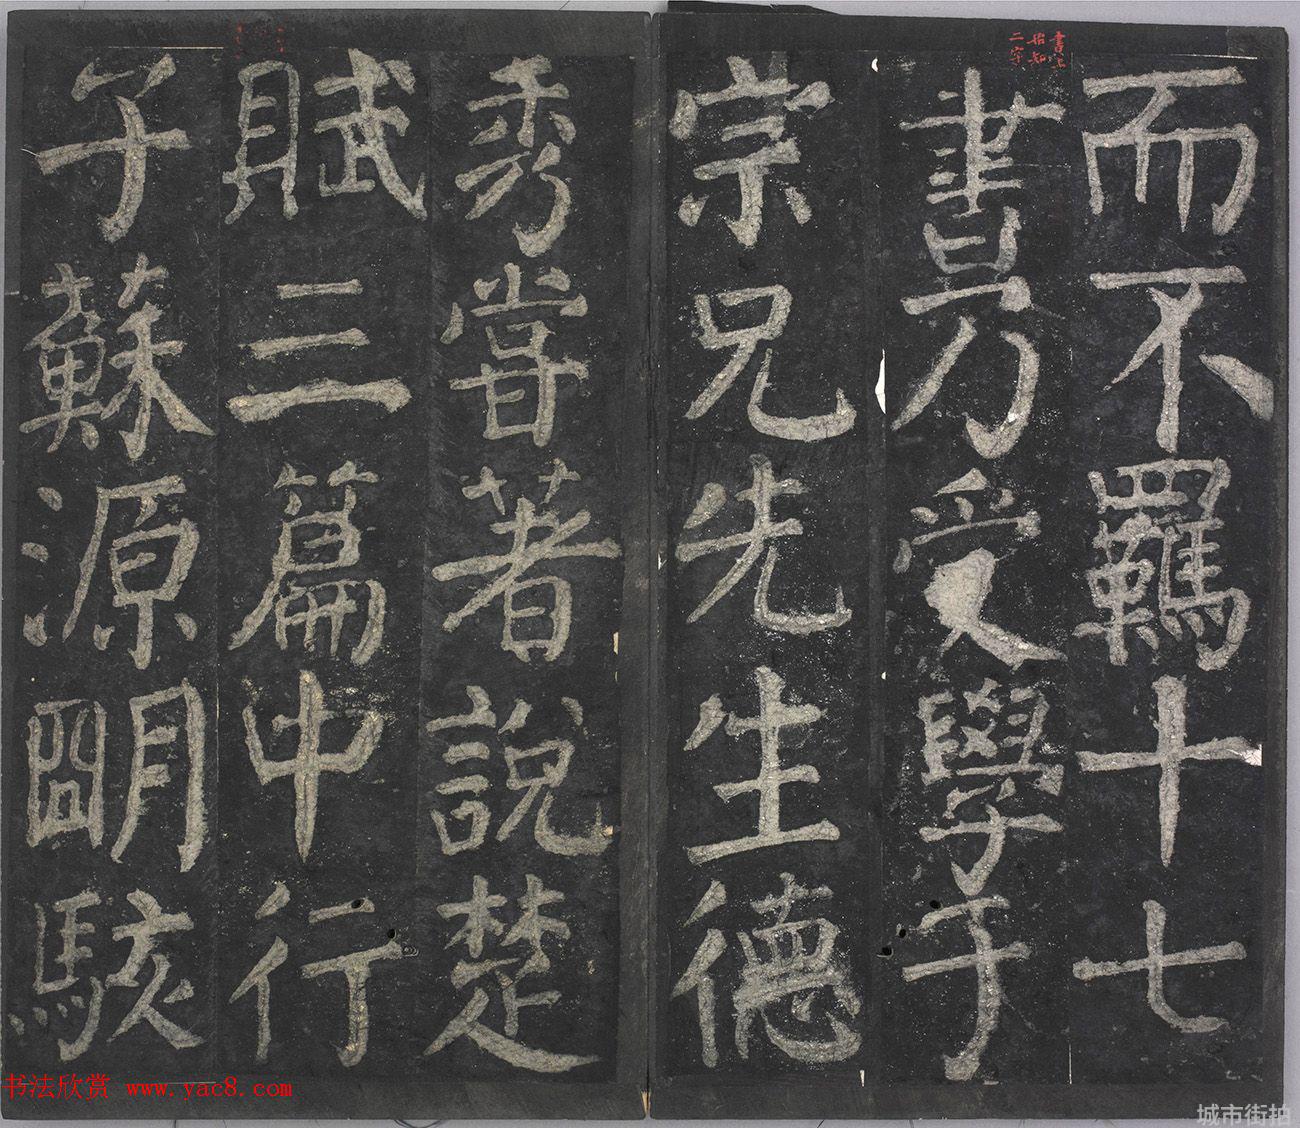 而不羈十七
書乃受學于
宗兄先生德
秀嘗著說楚
賦三篇中行
子蘇源明駭
書上
始知
二字
书法欣赏 www.yac8.com
城市街拍